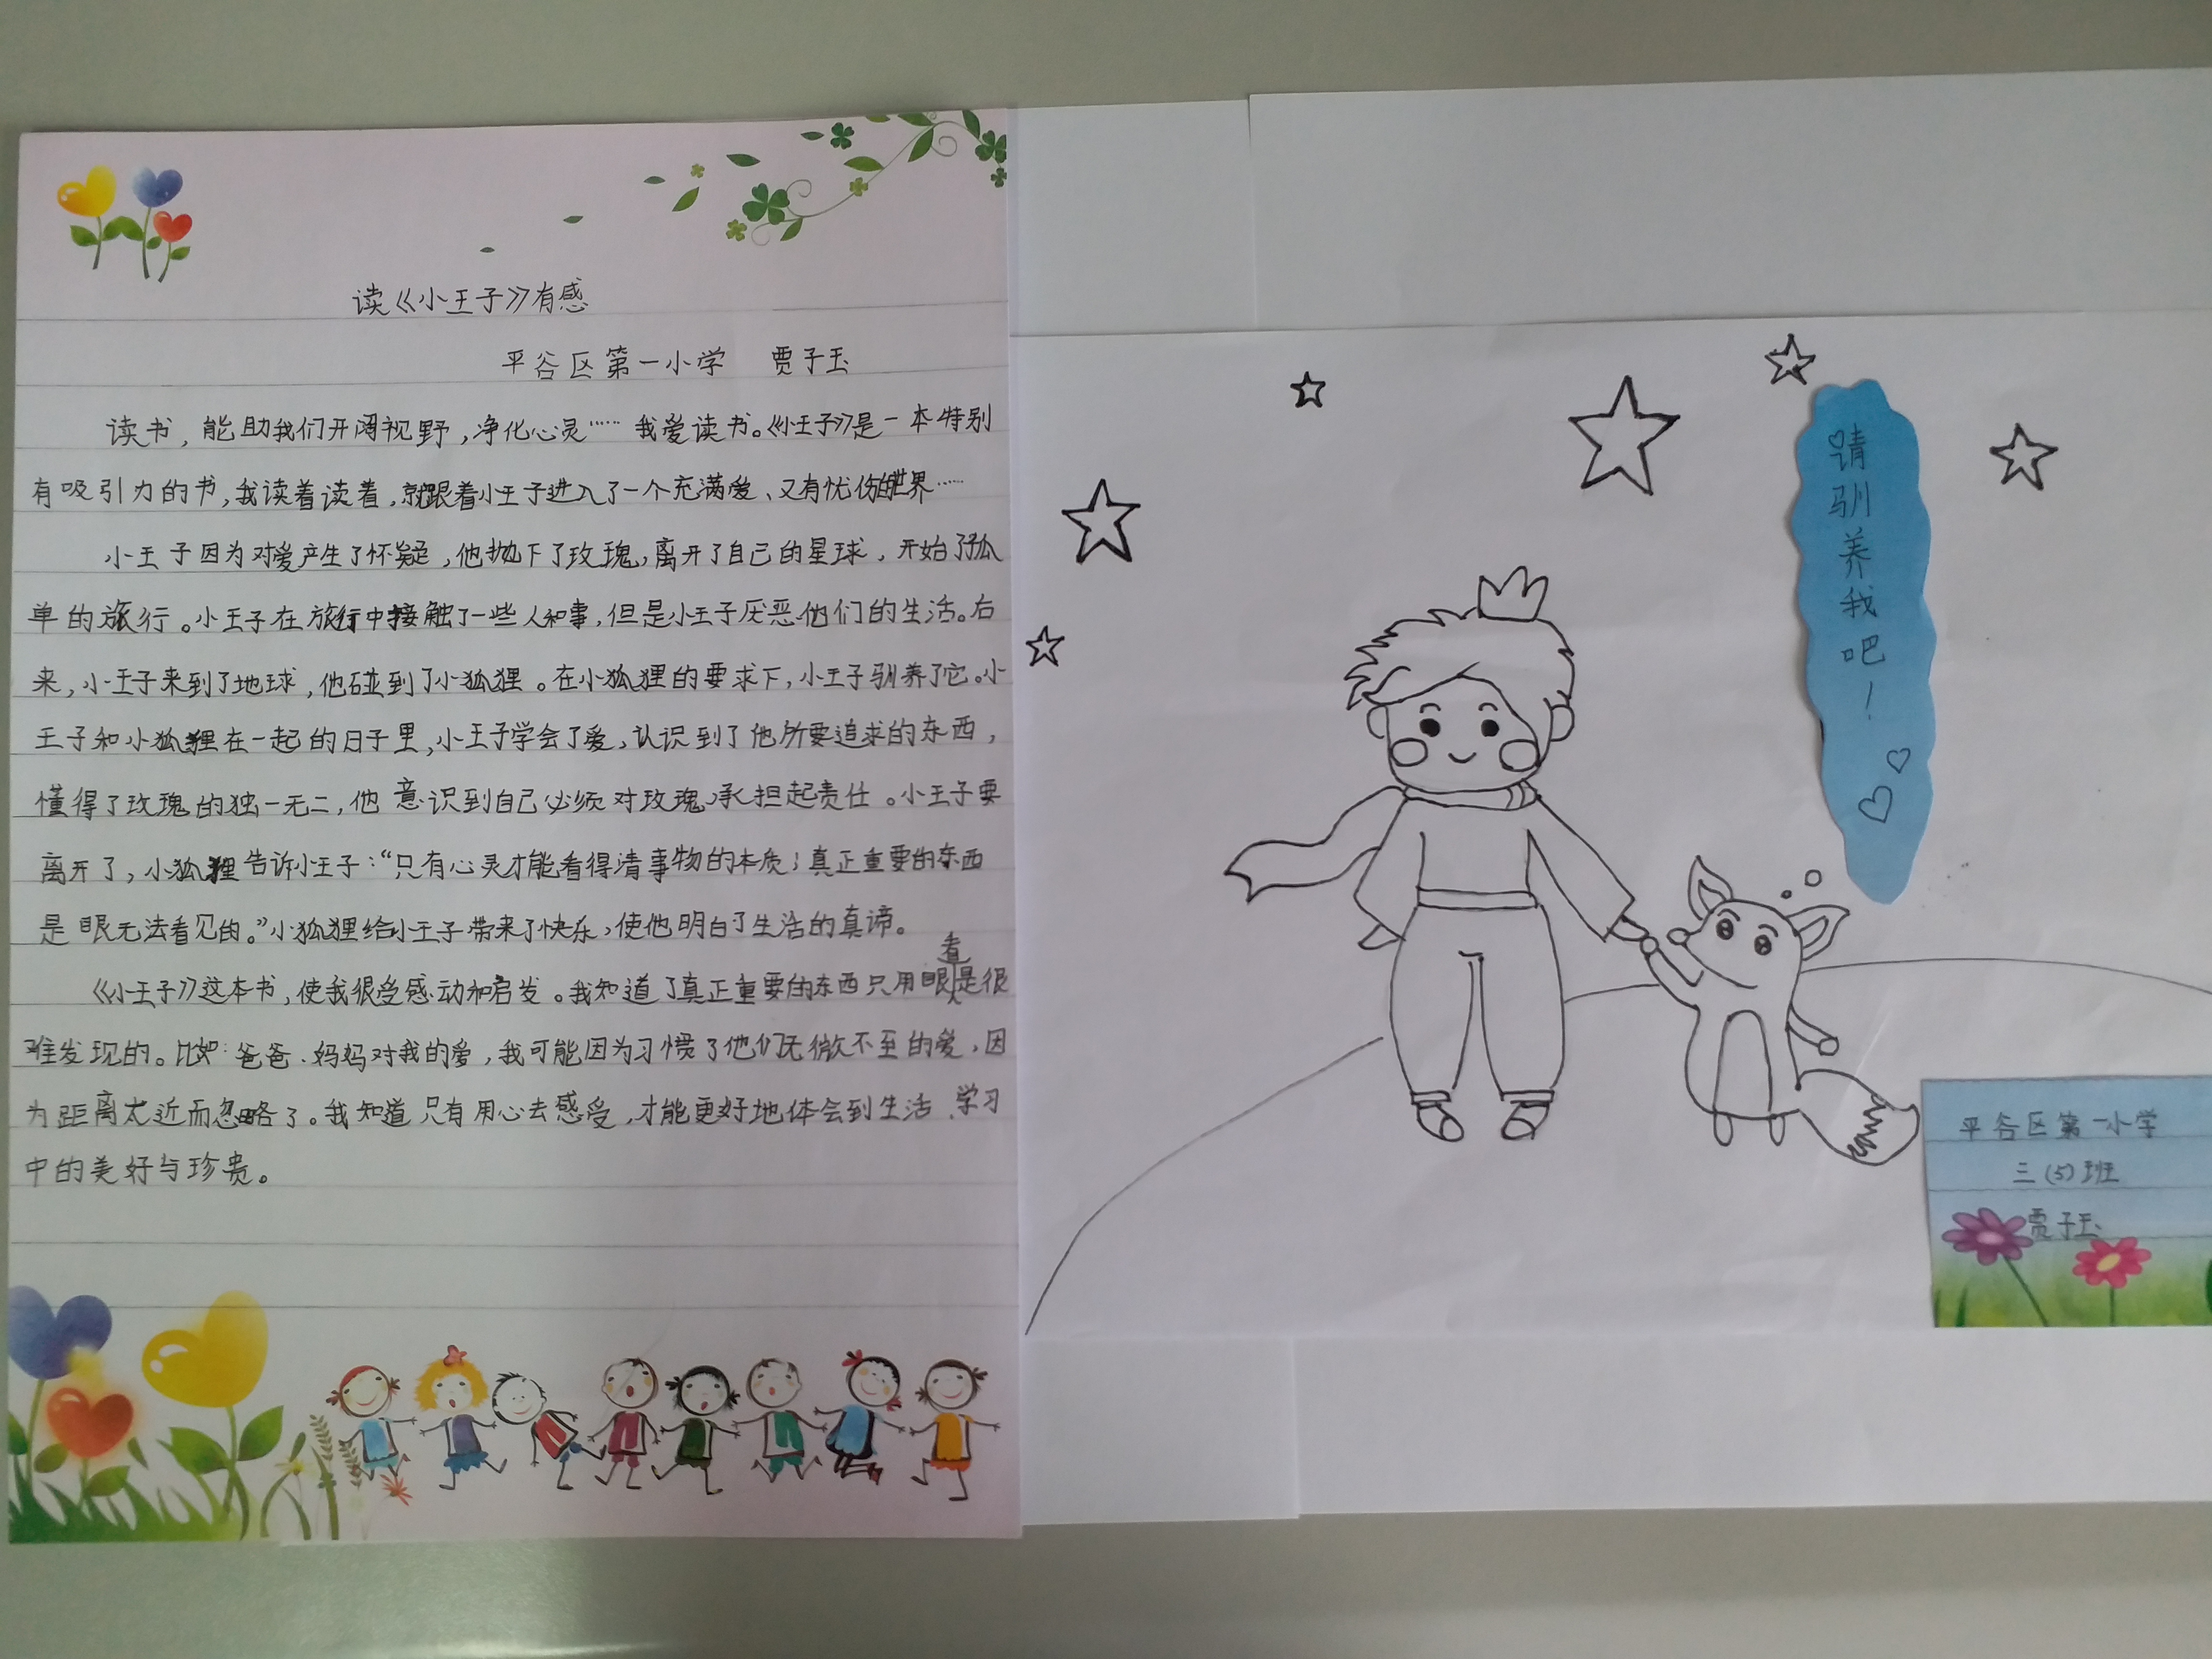 读《小王子》有感
平谷区第一小学 贾子玉
读书,能助我们开阔视野,净化心灵……我爱读书。《小王子》是一本特别
有吸引力的书,我读着读着,就跟着小王子进入了一个充满爱、又有忧伤的世界……
小王子因为对爱产生了怀疑,他抛下了玫瑰,离开了自己的星球,开始了孤
单的旅行。小王子在旅行中接触了一些人和事,但是小王子厌恶他们的生活。右
来,小王子来到了地球,他碰到了小狐狸。在小狐狸的要求下,小王子驯养了它。小
王子和小狐狸在一起的日子里,小王子学会了爱,认识到了他所要追求的东西,
懂得了玫瑰的独一无二,他意识到自己必须对玫瑰承担起责任。小王子要
离开了,小狐狸告诉小王子:“只有心灵才能看得清事物的本质;真正重要的东西
是眼无法看见的。”小狐狸给小王子带来了快乐,使他明白了生活的真谛。
《小王子》这本书,使我很受感动和启发。我知道了真正重要的东西只用眼看是很
难发现的。比如:爸爸、妈妈对我的爱,我可能因为习惯了他们无微不至的爱,因
为距离太近而忽略了。我知道只有用心去感受,才能更好地体会到生活、学习
中的美好与珍贵。
请驯养我吧!
平谷区第一小学
三(5)班
贾子玉